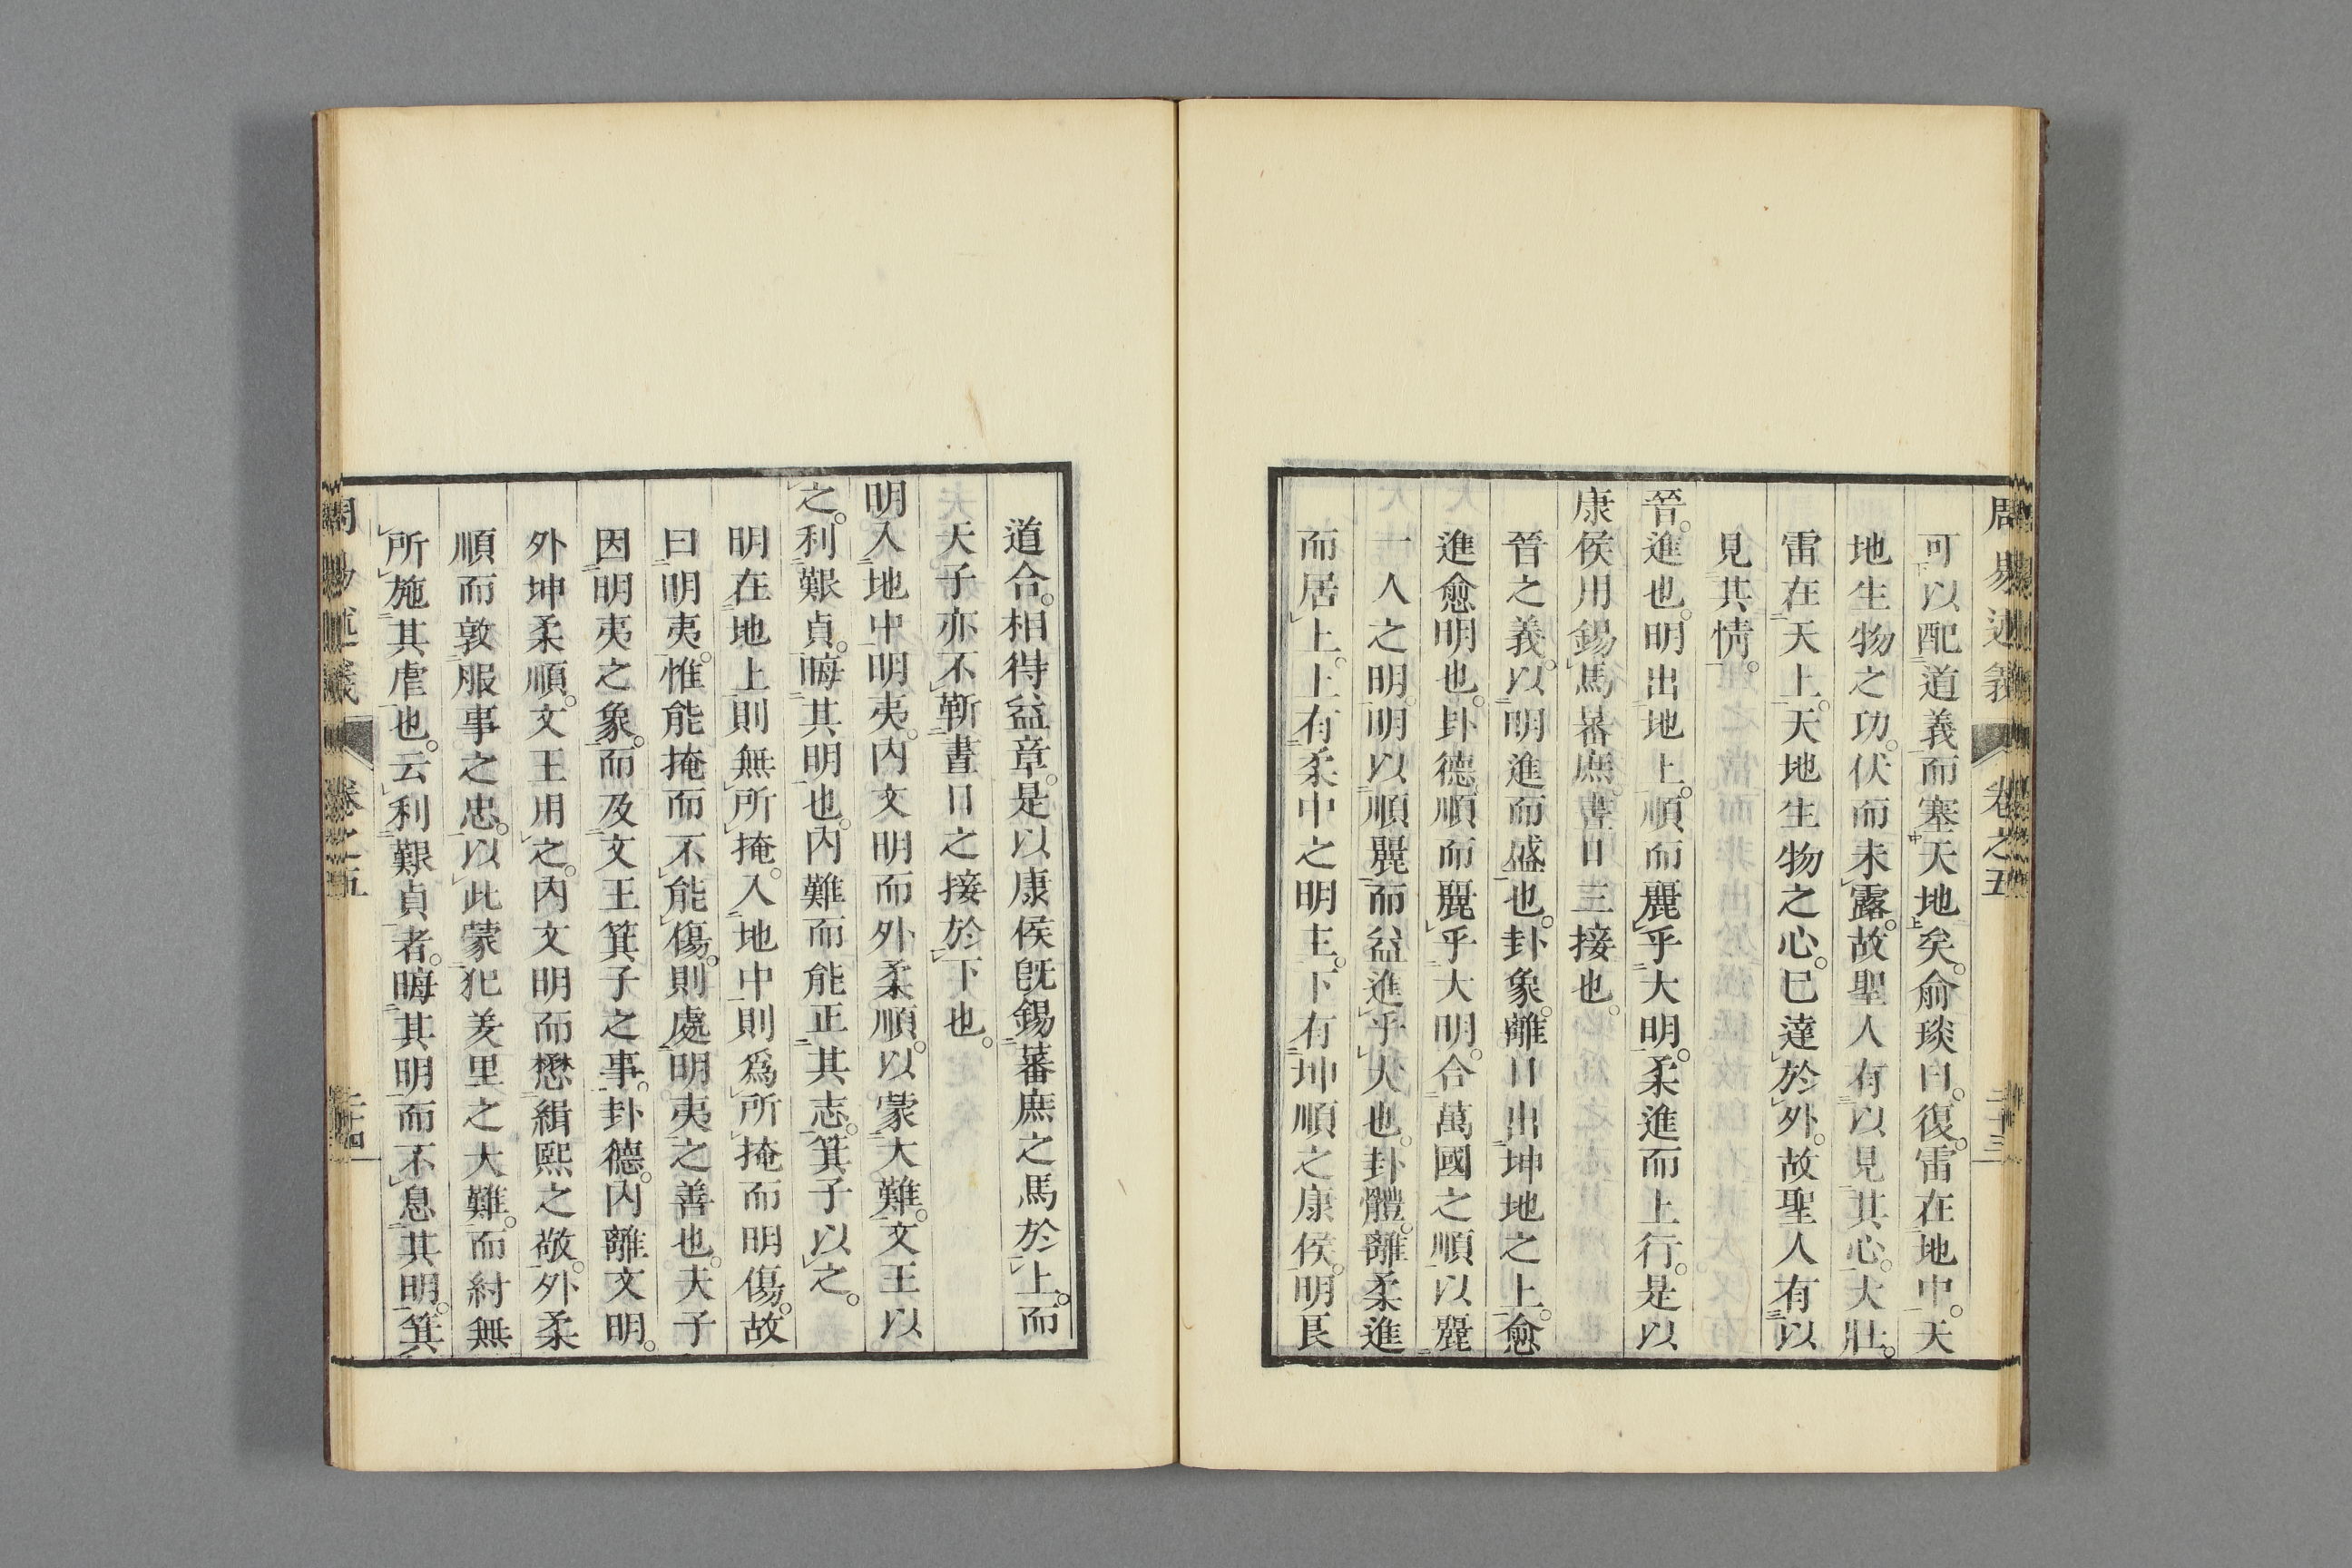 周易述義　卷之五　二十三
可以配道義而塞天地矣。俞琰曰。復。雷在地中。天
地生物之功。伏而未露。故聖人有以見其心。大壯。
雷在天上。天地生物之心。已達於外。故聖人有以
見其情。
晉。進也。明出地上。順而麗乎大明。柔進而上行。是以
康侯用錫馬蕃庶。晝日三接也。
晉之義。以明進而盛也。卦象。離日出坤地之上。愈
進愈明也。卦德。順而麗乎大明。合萬國之順以麗
一人之明。明以順麗而益進乎大也。卦體。離柔進
而居上。上有柔中之明主。下有坤順之康侯。明良
道合。相得益章。是以康侯旣錫蕃庶之馬於上。而
天子亦不靳晝日之接於下也。
明入地中明夷。內文明而外柔順。以蒙大難。文王以
之。利艱貞。晦其明也。內難而能正其志。箕子以之。
明在地上則無所掩。入地中則爲所掩而明傷。故
曰明夷。惟能掩而不能傷。則處明夷之善也。夫子
因明夷之象。而及文王箕子之事。卦德。內離文明。
外坤柔順。文王用之。內文明而懋緝熙之敬。外柔
順而敦服事之忠。以此蒙犯羑里之大難。而紂無
所施其虐也。云利艱貞者。晦其明而不息其明。箕
周易述義　卷之五　二十四